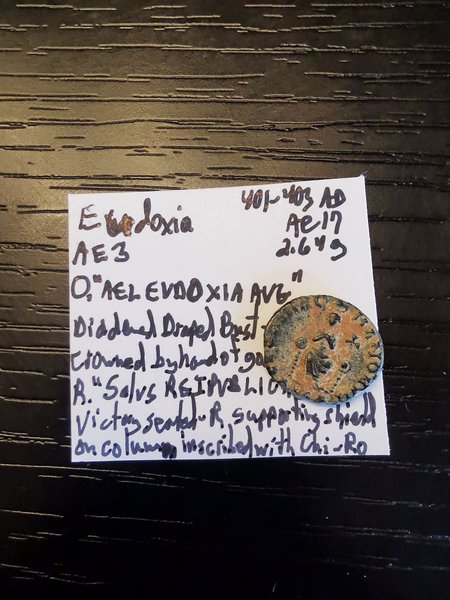 Eudoxia 401-403 AD
AE3 AE17
2.64g
O. "AEL EVDOXIA AVG"
Diademed Draped Bust
crowned by hand of
R. "Salvs REIPVBLI
Victory seated R, supporting shield
on column, inscribed with Chi-Ro